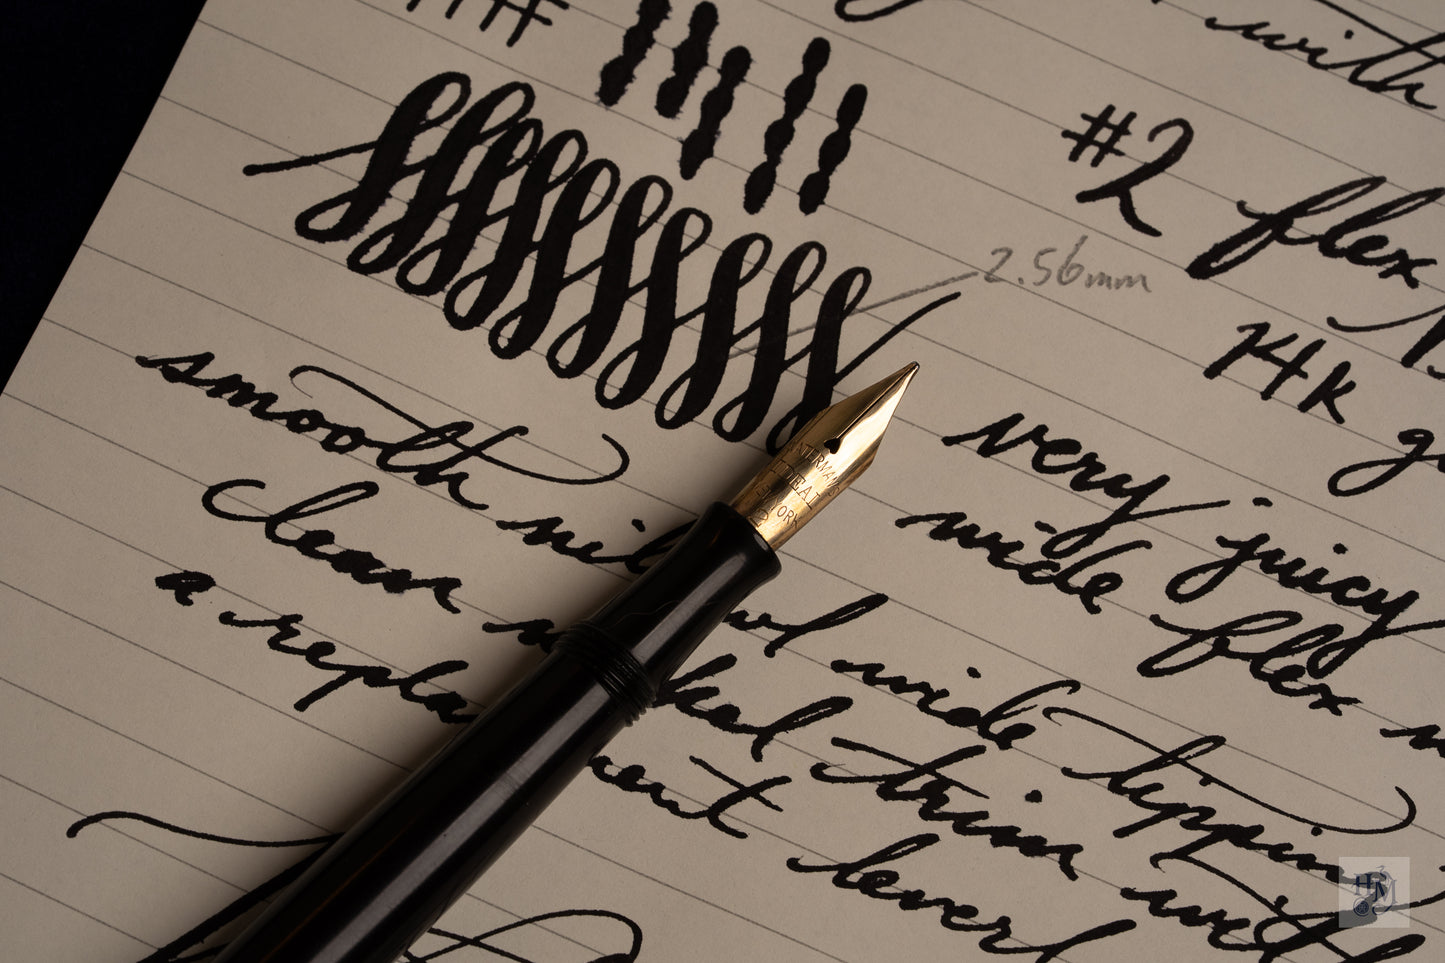 with
#2 flex
2.56mm
14K
very juicy
smooth wide flex
clean
a wide tipping
trim with
lever
WATERMAN'S
IDEAL
NEW YORK
2
HPM